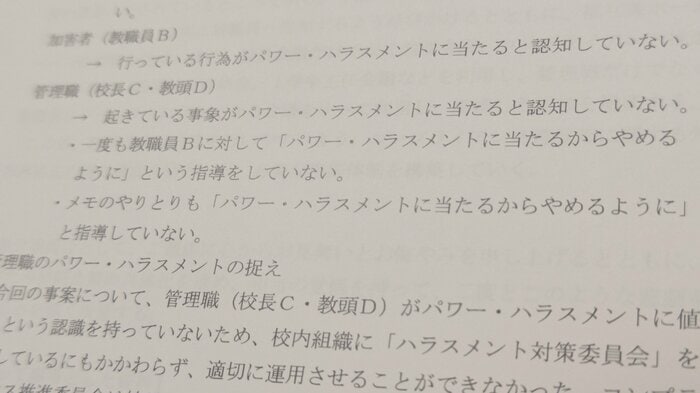 い。
加害者（教職員Ｂ）
→ 行っている行為がパワー・ハラスメントに当たると認知していない。
管理職（校長Ｃ・教頭Ｄ）
→ 起きている事象がパワー・ハラスメントに当たると認知していない。
・一度も教職員Ｂに対して「パワー・ハラスメントに当たるからやめる
ように」という指導をしていない。
・メモのやりとりも「パワー・ハラスメントに当たるからやめるように」
と指導していない。
管理職のパワー・ハラスメントの捉え
今回の事案について、管理職（校長Ｃ・教頭Ｄ）がパワー・ハラスメントに値
という認識を持っていないため、校内組織に「ハラスメント対策委員会」を
しているにもかかわらず、適切に運用させることができなかった。コンプラ
推進委員会